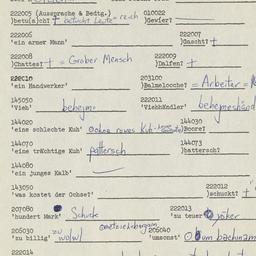 222005 (Aussprache & Bedtg.) 010022
)betu(a)cht? † betucht Leute = reich )Gewier?
222006 222007
'ein armer Mann' )Dascht? †
222008 222009
)Chattes? † = Grober Mensch )Dalfen? †
203100
'ein Handwerker' )Balmeloche? = Arbeiter =
145050 222011
'Vieh' beheime 'Viehhändler'
144020 144030
'eine schlechte Kuh' )Bore?
144070 144073
'eine trächtige Kuh' pattersch )battersch?
144080
'ein junges Kalb'
143050 222012
'was kostet der Ochse?' )schuckt? †
207080 222013
'hundert Mark' Schuck 'zu teuer' joker
206030 206040
'zu billig' zu wolwl 'umsonst'
222014